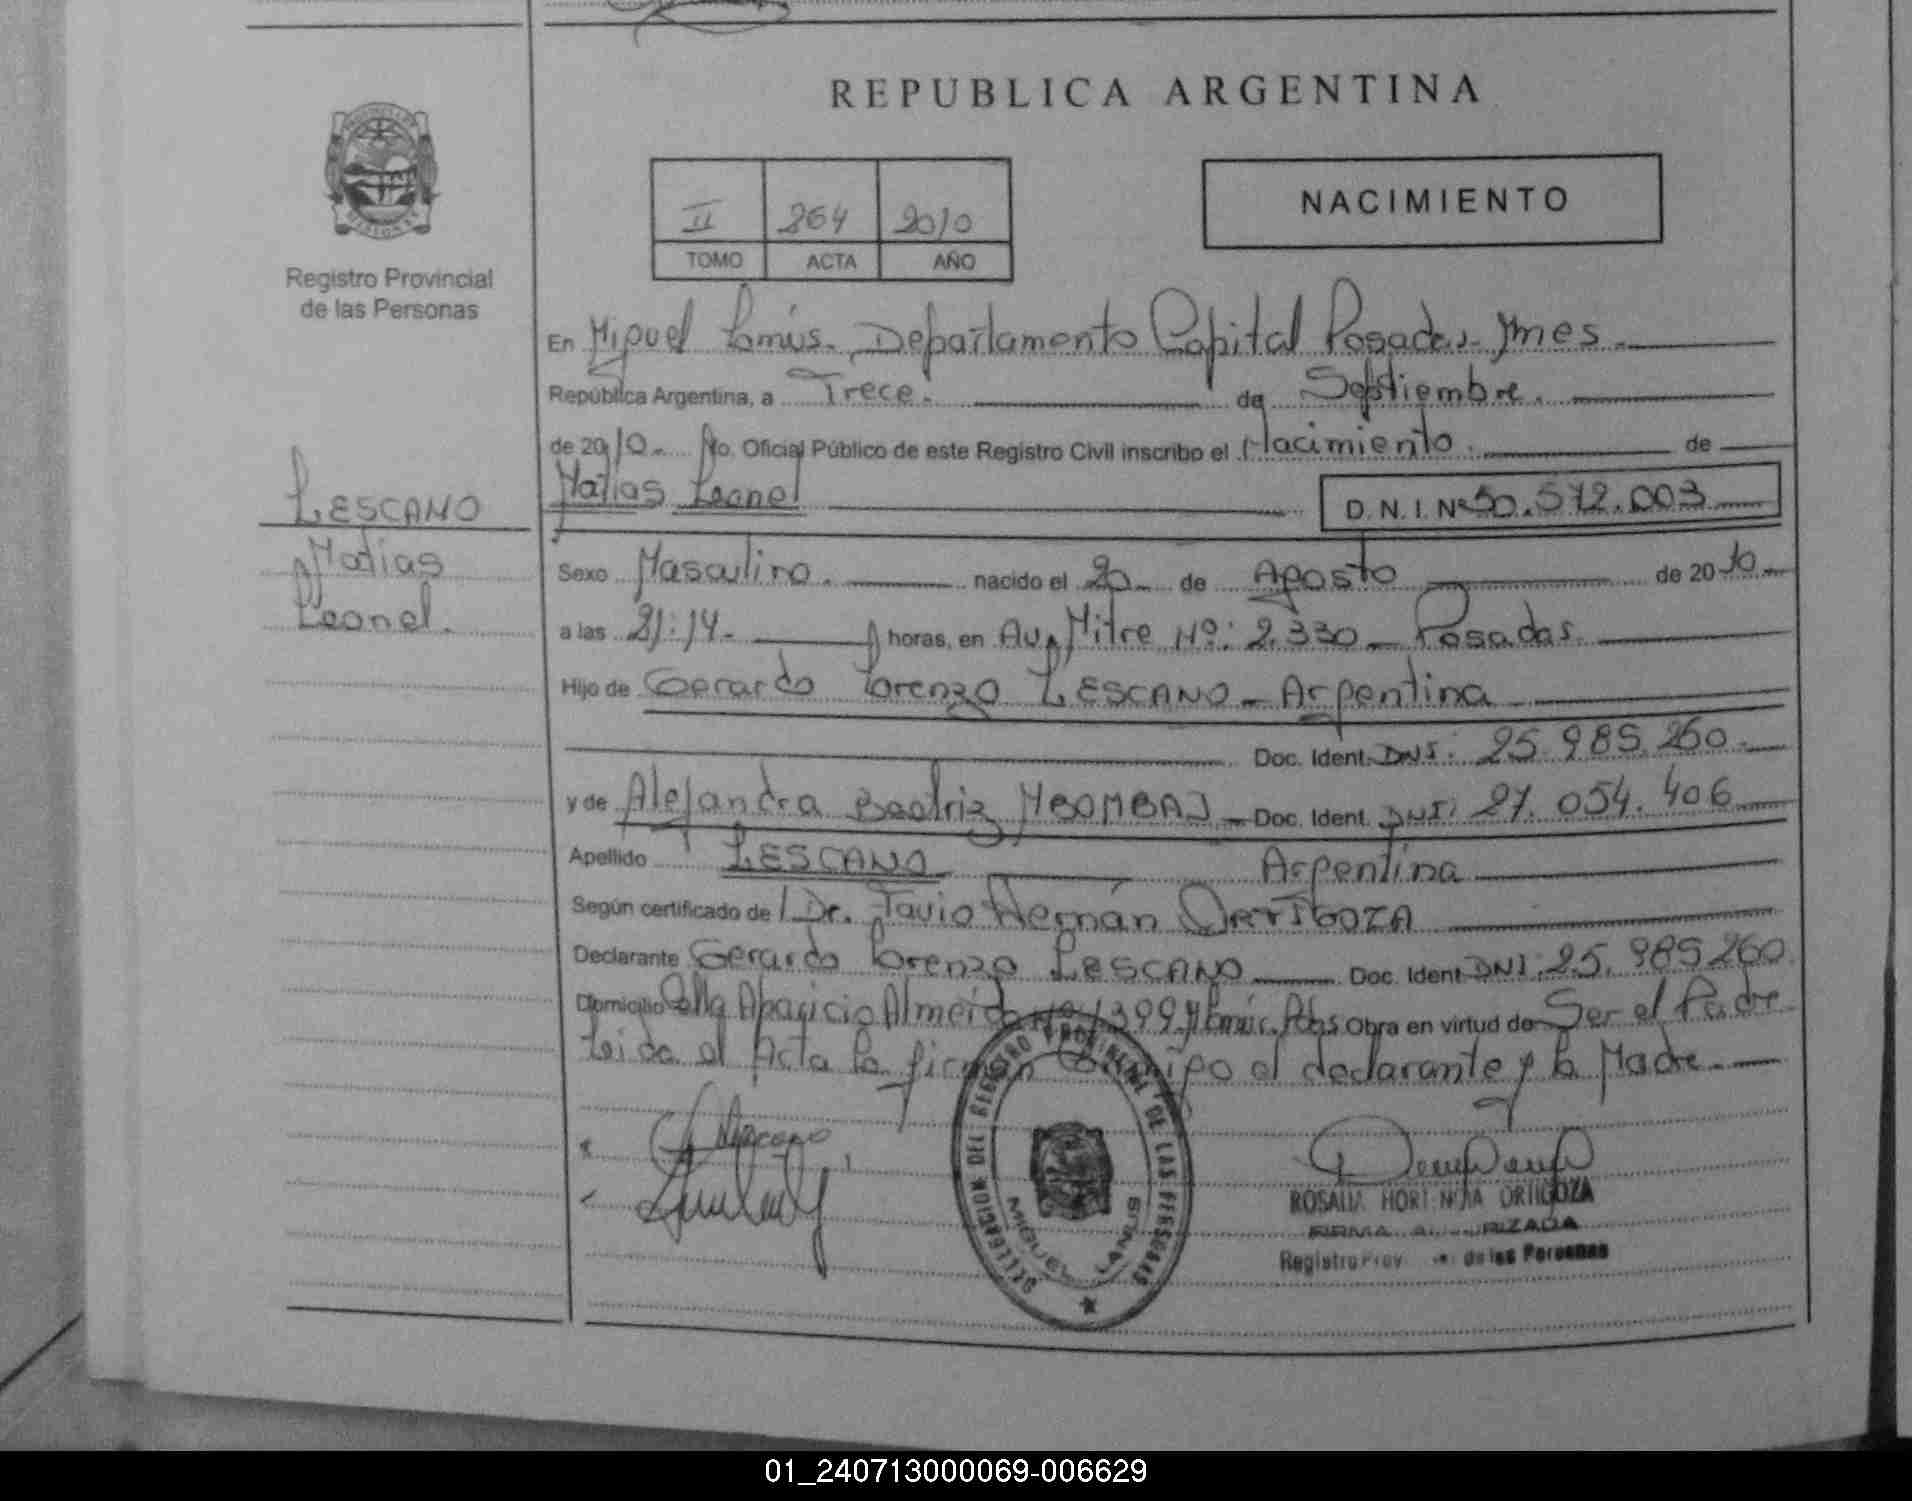 REPUBLICA ARGENTINA
Registro Provincial
de las Personas
II 264 2010
TOMO ACTA AÑO
NACIMIENTO
En Miguel Lanús. Departamento Capital Posadas. Mnes
República Argentina, a Trece. de Septiembre.
de 2010. Yo. Oficial Público de este Registro Civil inscribo el Nacimiento. de
Matias Leonel D. N. I. Nº 50.572.003
LESCANO
Matias
Leonel.
Sexo Masculino. nacido el 20 de Agosto de 2010
a las 21:14. horas, en Av. Mitre Nº: 2.330 Posadas.
Hijo de Gerardo Lorenzo LESCANO - Argentina
Doc. Ident. DNI: 25.985.260.
y de Alejandra Beatriz Doc. Ident. DNI: 27.054.406
Apellido LESCANO Argentina
Según certificado de Dr. Favio Hernán ORTIGOZA
Declarante Gerardo Lorenzo LESCANO Doc. Ident DNI: 25.985260.
Domicilio Aparicio Almeida Nº 1399 Obra en virtud de Ser el Padre
Leida el Acta la firman Conmigo el declarante y la Madre.
DELEGACION DEL REGISTRO PROVINCIAL DE LAS PERSONAS
MIGUEL LANUS
ROSALIA HORTENCIA ORTIGOZA
FIRMA AUTORIZADA
Registro Prov. de las Personas
01_240713000069-006629